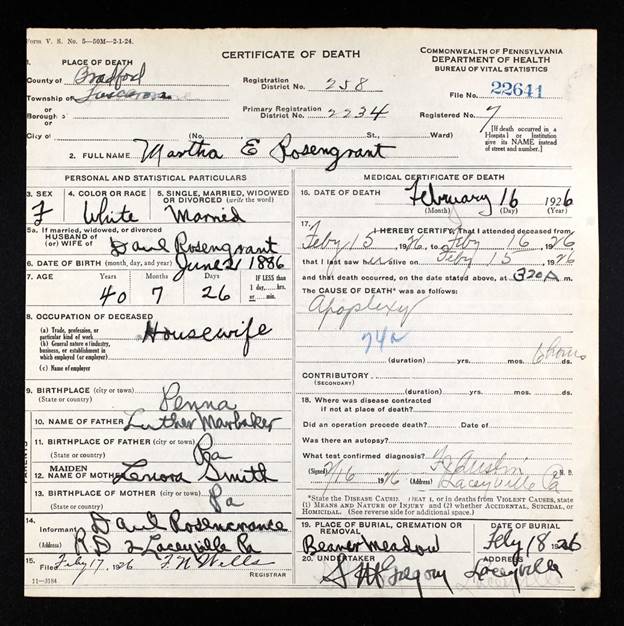 Form V. S. No. 5—50M—2-1-24.
CERTIFICATE OF DEATH
COMMONWEALTH OF PENNSYLVANIA
DEPARTMENT OF HEALTH
BUREAU OF VITAL STATISTICS
1. PLACE OF DEATH
County of Bradford
Township of Tuscarora
or
Borough
or
City of
Registration District No. 258
Primary Registration District No. 2234
File No. 22641
Registered No. 7
(No. St., Ward)
[If death occurred in a Hospital or Institution give its NAME instead of street and number.]
2. FULL NAME Martha E Rosengrant
PERSONAL AND STATISTICAL PARTICULARS
3. SEX F
4. COLOR OR RACE White
5. SINGLE, MARRIED, WIDOWED OR DIVORCED (write the word) Married
5a. If married, widowed, or divorced
HUSBAND of
(or) WIFE of Rosengrant
6. DATE OF BIRTH (month, day, and year) June 21 1886
7. AGE Years 40 Months 7 Days 26 IF LESS than 1 day, hrs. or min.
8. OCCUPATION OF DECEASED
(a) Trade, profession, or particular kind of work Housewife
(b) General nature of industry, business, or establishment in which employed (or employer)
(c) Name of employer
9. BIRTHPLACE (city or town) Penna
(State or country)
PARENTS
10. NAME OF FATHER Luther Marbaker
11. BIRTHPLACE OF FATHER (city or town) Pa
(State or country)
12. MAIDEN NAME OF MOTHER Lenora Smith
13. BIRTHPLACE OF MOTHER (city or town) Pa
(State or country)
14. Informant Rosencrance
(Address) R D 2 Laceyville Pa
15. Filed Feby 17, 1926 F. N. Wells
REGISTRAR
11-3184
MEDICAL CERTIFICATE OF DEATH
16. DATE OF DEATH February 16 1926
(Month) (Day) (Year)
17. I HEREBY CERTIFY, That I attended deceased from
Feby 15, 1926 to Feby 16 1926
that I last saw alive on Feby 15 1926
and that death occurred, on the date stated above, at 320 A m.
The CAUSE OF DEATH* was as follows:
Apoplexy
74a
(duration) yrs. mos. 6 hours ds.
CONTRIBUTORY
(SECONDARY)
(duration) yrs. mos. ds.
18. Where was disease contracted
if not at place of death?
Did an operation precede death? Date of
Was there an autopsy?
What test confirmed diagnosis?
(Signed) Austin M. D.
2/16 1926 (Address) Laceyville Pa
*State the DISEASE CAUSING DEATH, or in deaths from VIOLENT CAUSES, state (1) MEANS AND NATURE OF INJURY and (2) whether ACCIDENTAL, SUICIDAL, or HOMICIDAL. (See reverse side for additional space.)
19. PLACE OF BURIAL, CREMATION OR REMOVAL Beaver Meadow
DATE OF BURIAL Feby 18 1926
20. UNDERTAKER Gregory
ADDRESS Laceyville